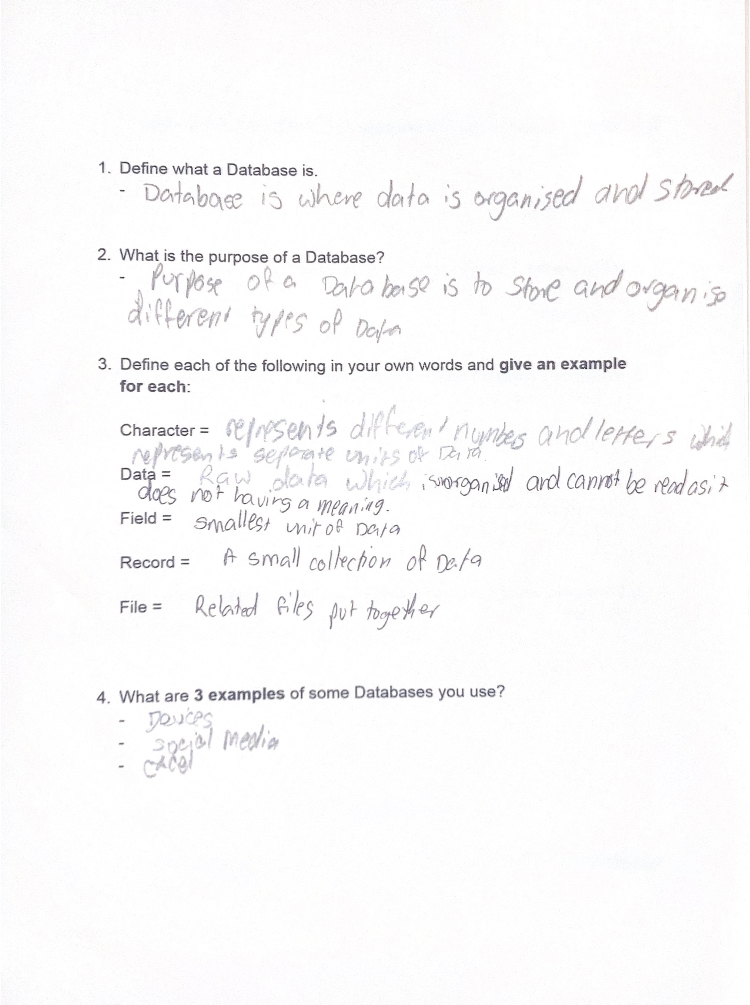 1. Define what a Database is.
- Database is where data is organised and stored
2. What is the purpose of a Database?
- Purpose of a Database is to store and organise
different types of Data
3. Define each of the following in your own words and give an example
for each:
Character = represents different numbers and letters which
represents separate units of Data
Data = Raw data which is unorganised and cannot be read as it
does not having a meaning.
Field = smallest unit of Data
Record = A small collection of Data
File = Related files put together
4. What are 3 examples of some Databases you use?
- Devices
- social media
- excel